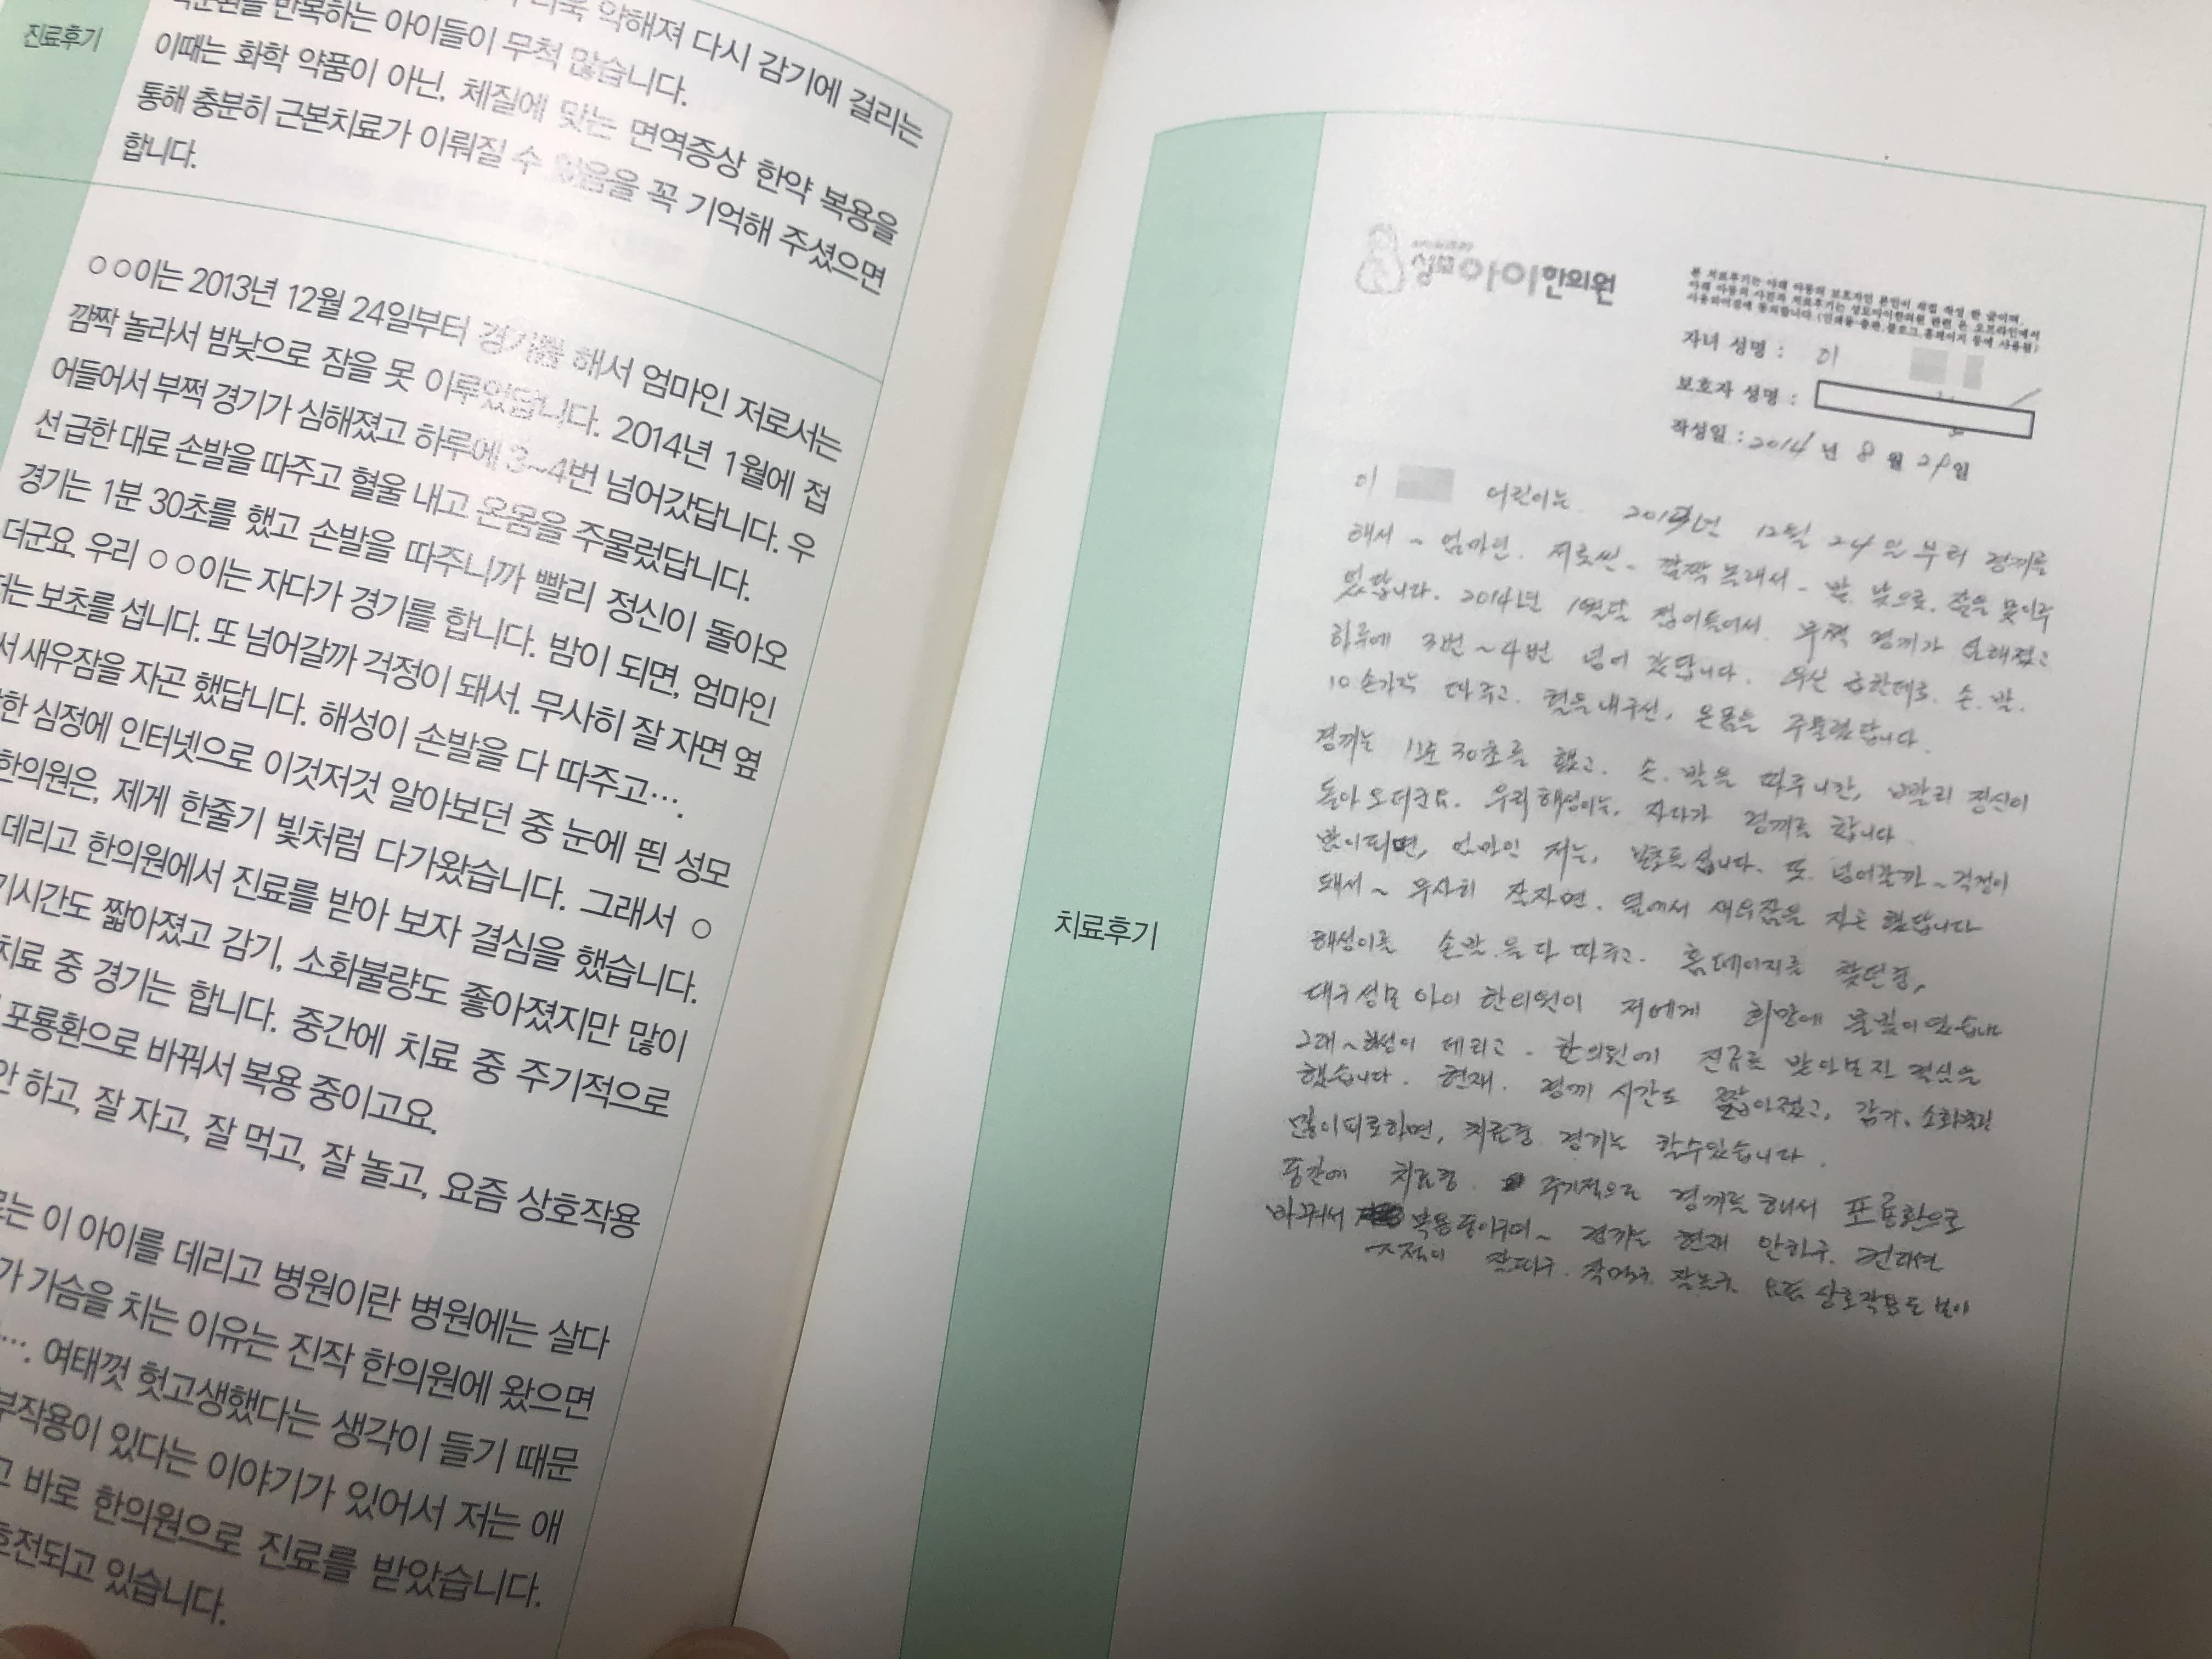 진료후기
더욱 약해져 다시 감기에 걸리는
반복하는 아이들이 무척 많습니다.
이때는 화학 약품이 아닌, 체질에 맞는 면역증상 한약 복용을
통해 충분히 근본치료가 이뤄질 수 있음을 꼭 기억해 주셨으면
합니다.
○○이는 2013년 12월 24일부터 경기를 해서 엄마인 저로서는
깜짝 놀라서 밤낮으로 잠을 못 이루었답니다. 2014년 1월에 접
어들어서 부쩍 경기가 심해졌고 하루에 3~4번 넘어갔답니다. 우
선 급한 대로 손발을 따주고 혈울 내고 온몸을 주물렀답니다.
경기는 1분 30초를 했고 손발을 따주니까 빨리 정신이 돌아오
더군요. 우리 ○○이는 자다가 경기를 합니다. 밤이 되면, 엄마인
저는 보초를 섭니다. 또 넘어갈까 걱정이 돼서. 무사히 잘 자면 옆
서 새우잠을 자곤 했답니다. 해성이 손발을 다 따주고….
한 심정에 인터넷으로 이것저것 알아보던 중 눈에 띈 성모
한의원은, 제게 한줄기 빛처럼 다가왔습니다. 그래서 ○
데리고 한의원에서 진료를 받아 보자 결심을 했습니다.
기시간도 짧아졌고 감기, 소화불량도 좋아졌지만 많이
치료 중 경기는 합니다. 중간에 치료 중 주기적으로
포룡환으로 바꿔서 복용 중이고요.
안 하고, 잘 자고, 잘 먹고, 잘 놀고, 요즘 상호작용
는 이 아이를 데리고 병원이란 병원에는 살다
가 가슴을 치는 이유는 진작 한의원에 왔으면
…. 여태껏 헛고생했다는 생각이 들기 때문
부작용이 있다는 이야기가 있어서 저는 애
고 바로 한의원으로 진료를 받았습니다.
호전되고 있습니다.
치료후기
성모아이한의원
본 치료후기는 아래 아동의 보호자인 본인이 직접 작성 한 글이며,
아래 아동의 사진과 치료후기는 성모아이한의원 관련 온 오프라인에서
사용되어짐에 동의합니다.(인쇄물 출판,블로그,홈페이지 등에 사용됨)
자녀 성명 : 이
보호자 성명 :
작성일 : 2014년 8월 29일
이 어린이는 2013년 12월 24일부터 경끼를
해서~ 엄마인. 저로썬~ 깜짝놀래서~ 밤.낮으로. 잠을 못이루
었답니다. 2014년 1월달 접어들어서 부쩍 경끼가 심해졌고
하루에 3번~4번 넘어 갔답니다. 우선 급한데로. 손.발.
10손가락 따주고. 혈을내구선, 온몸을 주물렀답니다.
경끼는 1분30초를 했고. 손.발을 따주니간, 빨리 정신이
돌아오더군요. 우리해성이는, 자다가 경끼를 합니다.
밤이되면, 엄마인 저는, 보초를섭니다. 또 넘어갈까~ 걱정이
돼서~ 무사히 잘자면. 옆에서 새우잠을 자곤 했답니다
해성이를 손발을다 따주고. 홈페이지를 찾던중,
대구성모 아이 한의원이 저에게 희망에 불빛이였습니다
그래~해성이 데리고. 한의원에 진료를 받아보자 결심을
했습니다. 현재. 경끼 시간도 짧아졌고, 감기. 소화불량
많이피로하면, 치료중 경끼는 할수있습니다.
중간에 치료중 주기적으로 경끼를 해서 포룡환으로
바꿔서 복용중이구며~ 경끼는 현재 안하구. 컨디션
잘자구. 잘먹구. 잘놀구. 요즘 상호작용도 많이